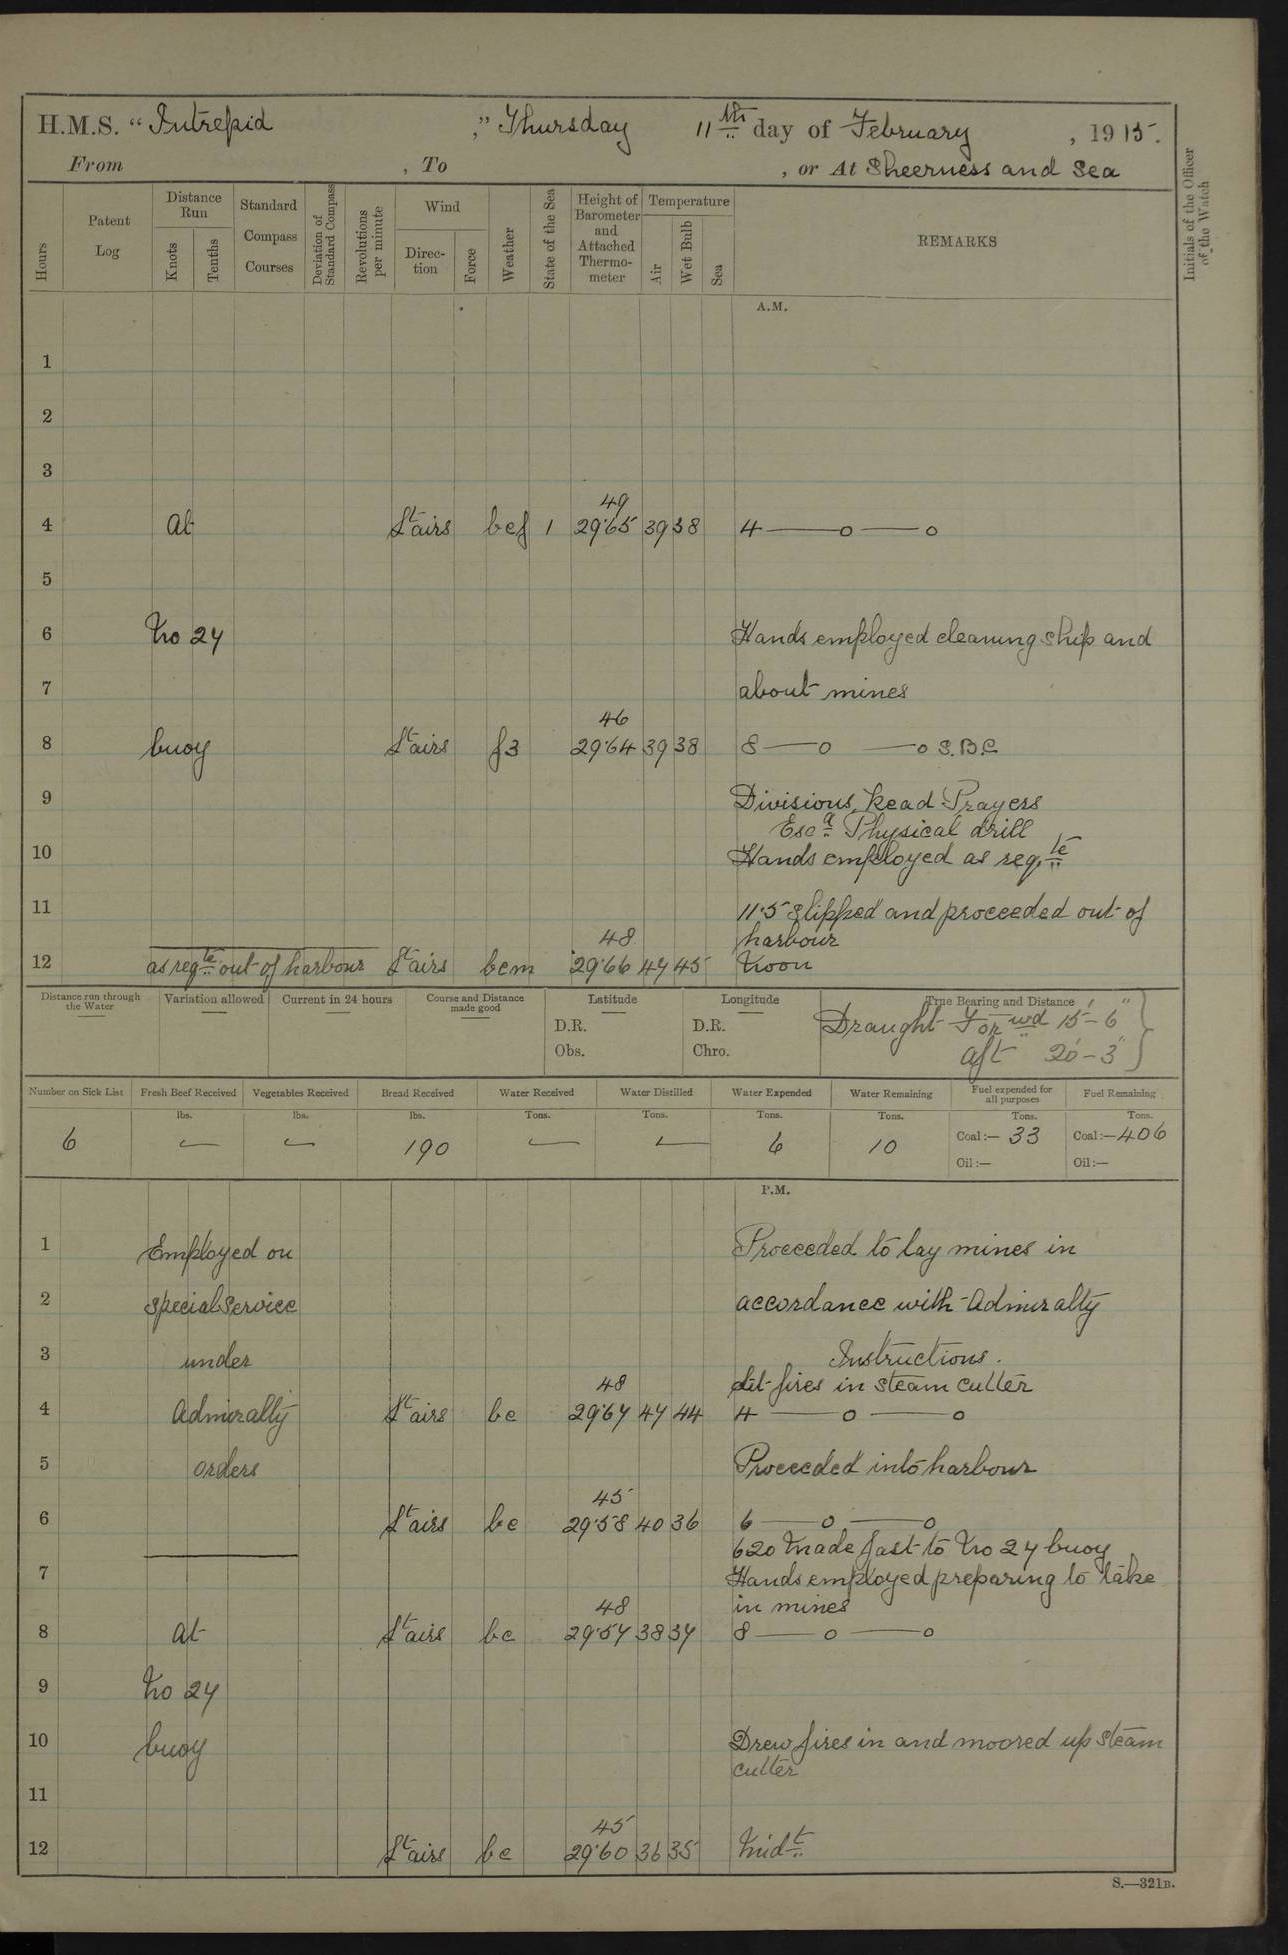 H.M.S. "Intrepid," Thursday 11th day of February, 1915.
From , To , or At Sheerness and Sea
Hours
Patent Log
Distance Run
Knots
Tenths
Standard Compass Courses
Deviation of Standard Compass
Revolutions per minute
Wind
Direction
Force
Weather
State of the Sea
Height of Barometer and Attached Thermometer
Temperature
Air
Wet Bulb
Sea
REMARKS
Initials of the Officer of the Watch
A.M.
1
2
3
49
4 At Lt airs bcf 1 29.65 39 38 4 — o — o
5
6 No 27 Hands employed cleaning ship and
7 about mines
46
8 buoy Lt airs f3 29.64 39 38 8 — o — o S.B.C
9 Divisions, Read Prayers
Escd Physical drill
10 Hands employed as reqte
11 11.5 Slipped and proceeded out of
48 harbour
12 as reqte out of harbour Lt airs bcm 29.66 47 45 Noon
Distance run through the Water
Variation allowed
Current in 24 hours
Course and Distance made good
Latitude
D.R.
Obs.
Longitude
D.R.
Chro.
True Bearing and Distance
Draught Forwd 15'-6"
aft 20'-3"
Number on Sick List
Fresh Beef Received
Vegetables Received
Bread Received
Water Received
Water Distilled
Water Expended
Water Remaining
Fuel expended for all purposes
Fuel Remaining
lbs. lbs. lbs. Tons. Tons. Tons. Tons. Tons. Tons.
6 — — 190 — — 6 10 Coal:— 33 Coal:— 406
Oil:— Oil:—
P.M.
1 Employed on Proceeded to lay mines in
2 special service accordance with Admiralty
3 under Instructions.
48 Lit fires in steam cutter
4 Admiralty Lt airs bc 29.67 47 44 4 — o — o
5 orders Proceeded into harbour
45
6 Lt airs bc 29.58 40 36 6 — o — o
620 Made fast to No 27 buoy
7 Hands employed preparing to take
48 in mines
8 At Lt airs bc 29.57 38 37 8 — o — o
9 No 27
10 buoy Drew fires in and moored up steam
cutter
11
45
12 Lt airs bc 29.60 36 35 Midt
S.—321B.